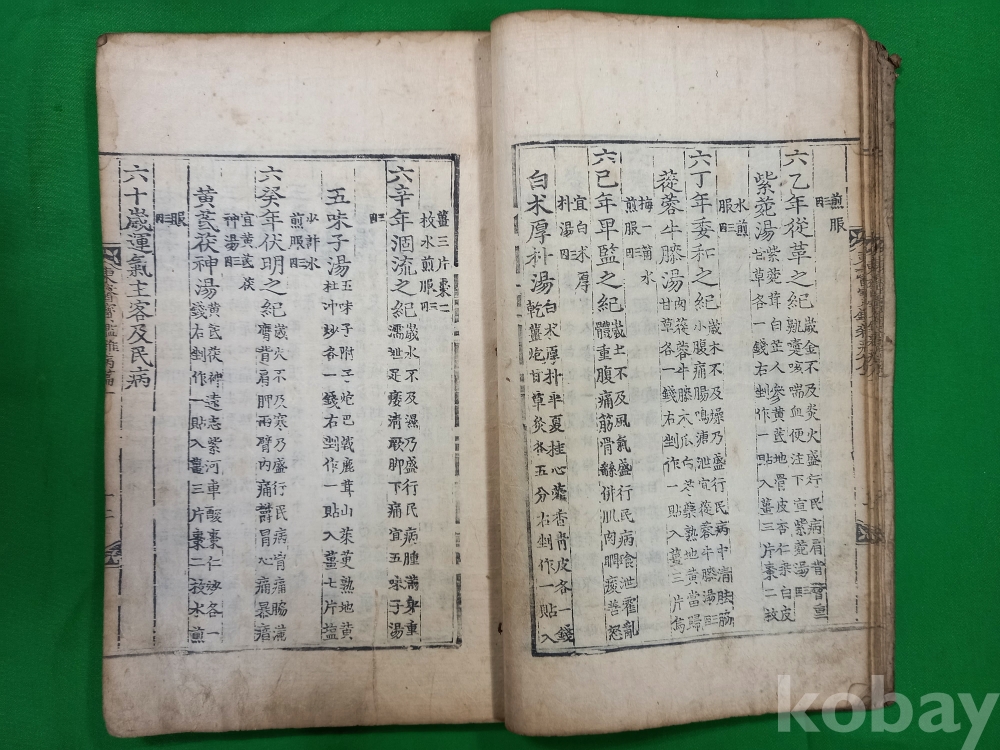 煎服 三因
六乙年從革之紀 歲金不及炎火盛行民病肩背瞀重
鼽嚔咳喘血便注下宜紫菀湯 三因
紫菀湯 紫菀茸白芷人參黃芪地骨皮杏仁桑白皮
甘草各一錢右剉作一貼入薑三片棗二枚
水煎服 三因
六丁年委和之紀 歲木不及燥乃盛行民病中淸胠脇
小腹痛腸鳴溏泄宜蓯蓉牛膝湯 三因
蓯蓉牛膝湯 肉蓯蓉牛膝木瓜白芍藥熟地黃當歸
甘草各一錢右剉作一貼入薑三片烏
梅一箇水煎服 三因
六己年卑監之紀 歲土不及風氣盛行民病飧泄霍亂
體重腹痛筋骨繇倂肌肉瞤痠善怒
宜白朮厚朴湯 三因
白朮厚朴湯 白朮厚朴半夏桂心藿香靑皮各一錢
乾薑炮甘草灸各五分右剉作一貼入
薑三片棗二枚水煎服 三因
六辛年涸流之紀 歲水不及濕乃盛行民病腫滿身重
濡泄足痿淸厥脚下痛宜五味子湯
三因
五味子湯 五味子附子炮巴戟鹿茸山茱萸熟地黃
杜冲炒各一錢右剉作一貼入薑七片塩
少許水煎服 三因
六癸年伏明之紀 歲火不及寒乃盛行民病胷痛脇滿
膺背肩胛兩臂內痛欝冒心痛暴瘖
宜黃芪茯神湯 三因
黃芪茯神湯 黃芪茯神遠志紫河車酸棗仁炒各一
錢右剉作一貼入薑三片棗二枚水煎
服 三因
六十歲運氣主客及民病
東醫寶鑑雜病篇一
十二